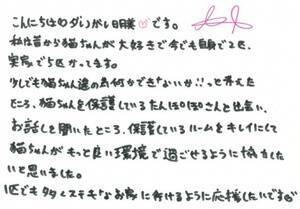 こんにちは、ダンガレ明美♡です。
私は昔から猫ちゃんが大好きで今でも自身で2匹、
実家で5匹かってます。
少しでも猫ちゃん達の為何かできないか!!と考えた
ところ、猫ちゃんを保護しているたんぽぽさんと出会い、
お話しを聞いたところ、保護しているルームをキレイにして
猫ちゃんがもっと良い環境で過ごせるように協力した
いと思いました。
1匹でも多くステキなお家に行けるように応援したいです